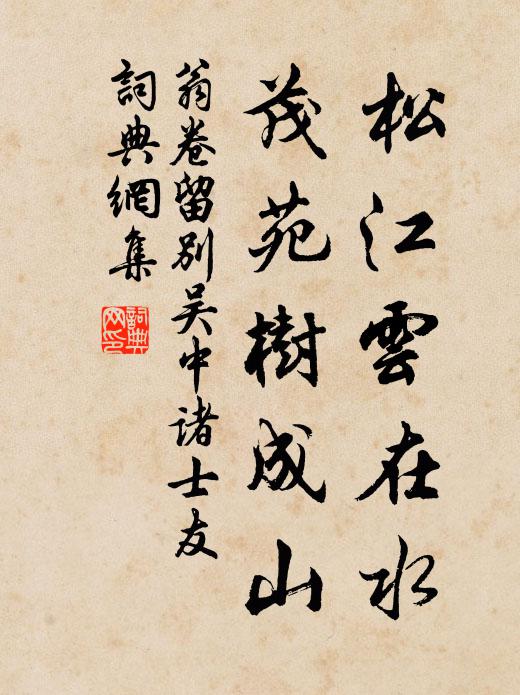 松江雲在水
茂苑樹成山
翁卷留別吴中诸士友
詞典網集
詞典
网印